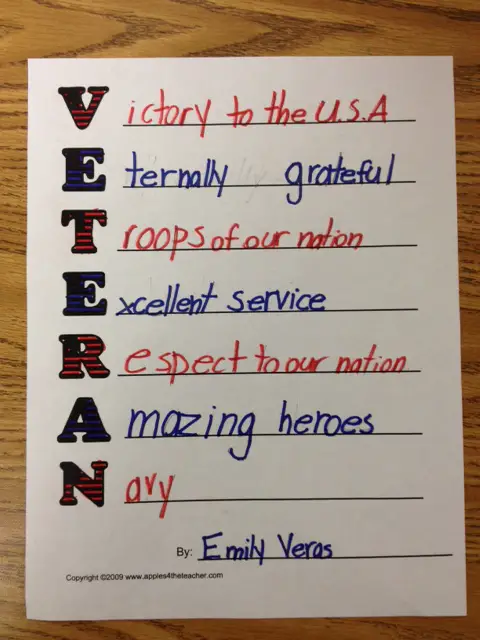 Victory to the U.S.A
Eternally grateful
Troops of our nation
Excellent service
Respect to our nation
Amazing heroes
Navy
By: Emily Veras
Copyright ©2009 www.apples4theteacher.com